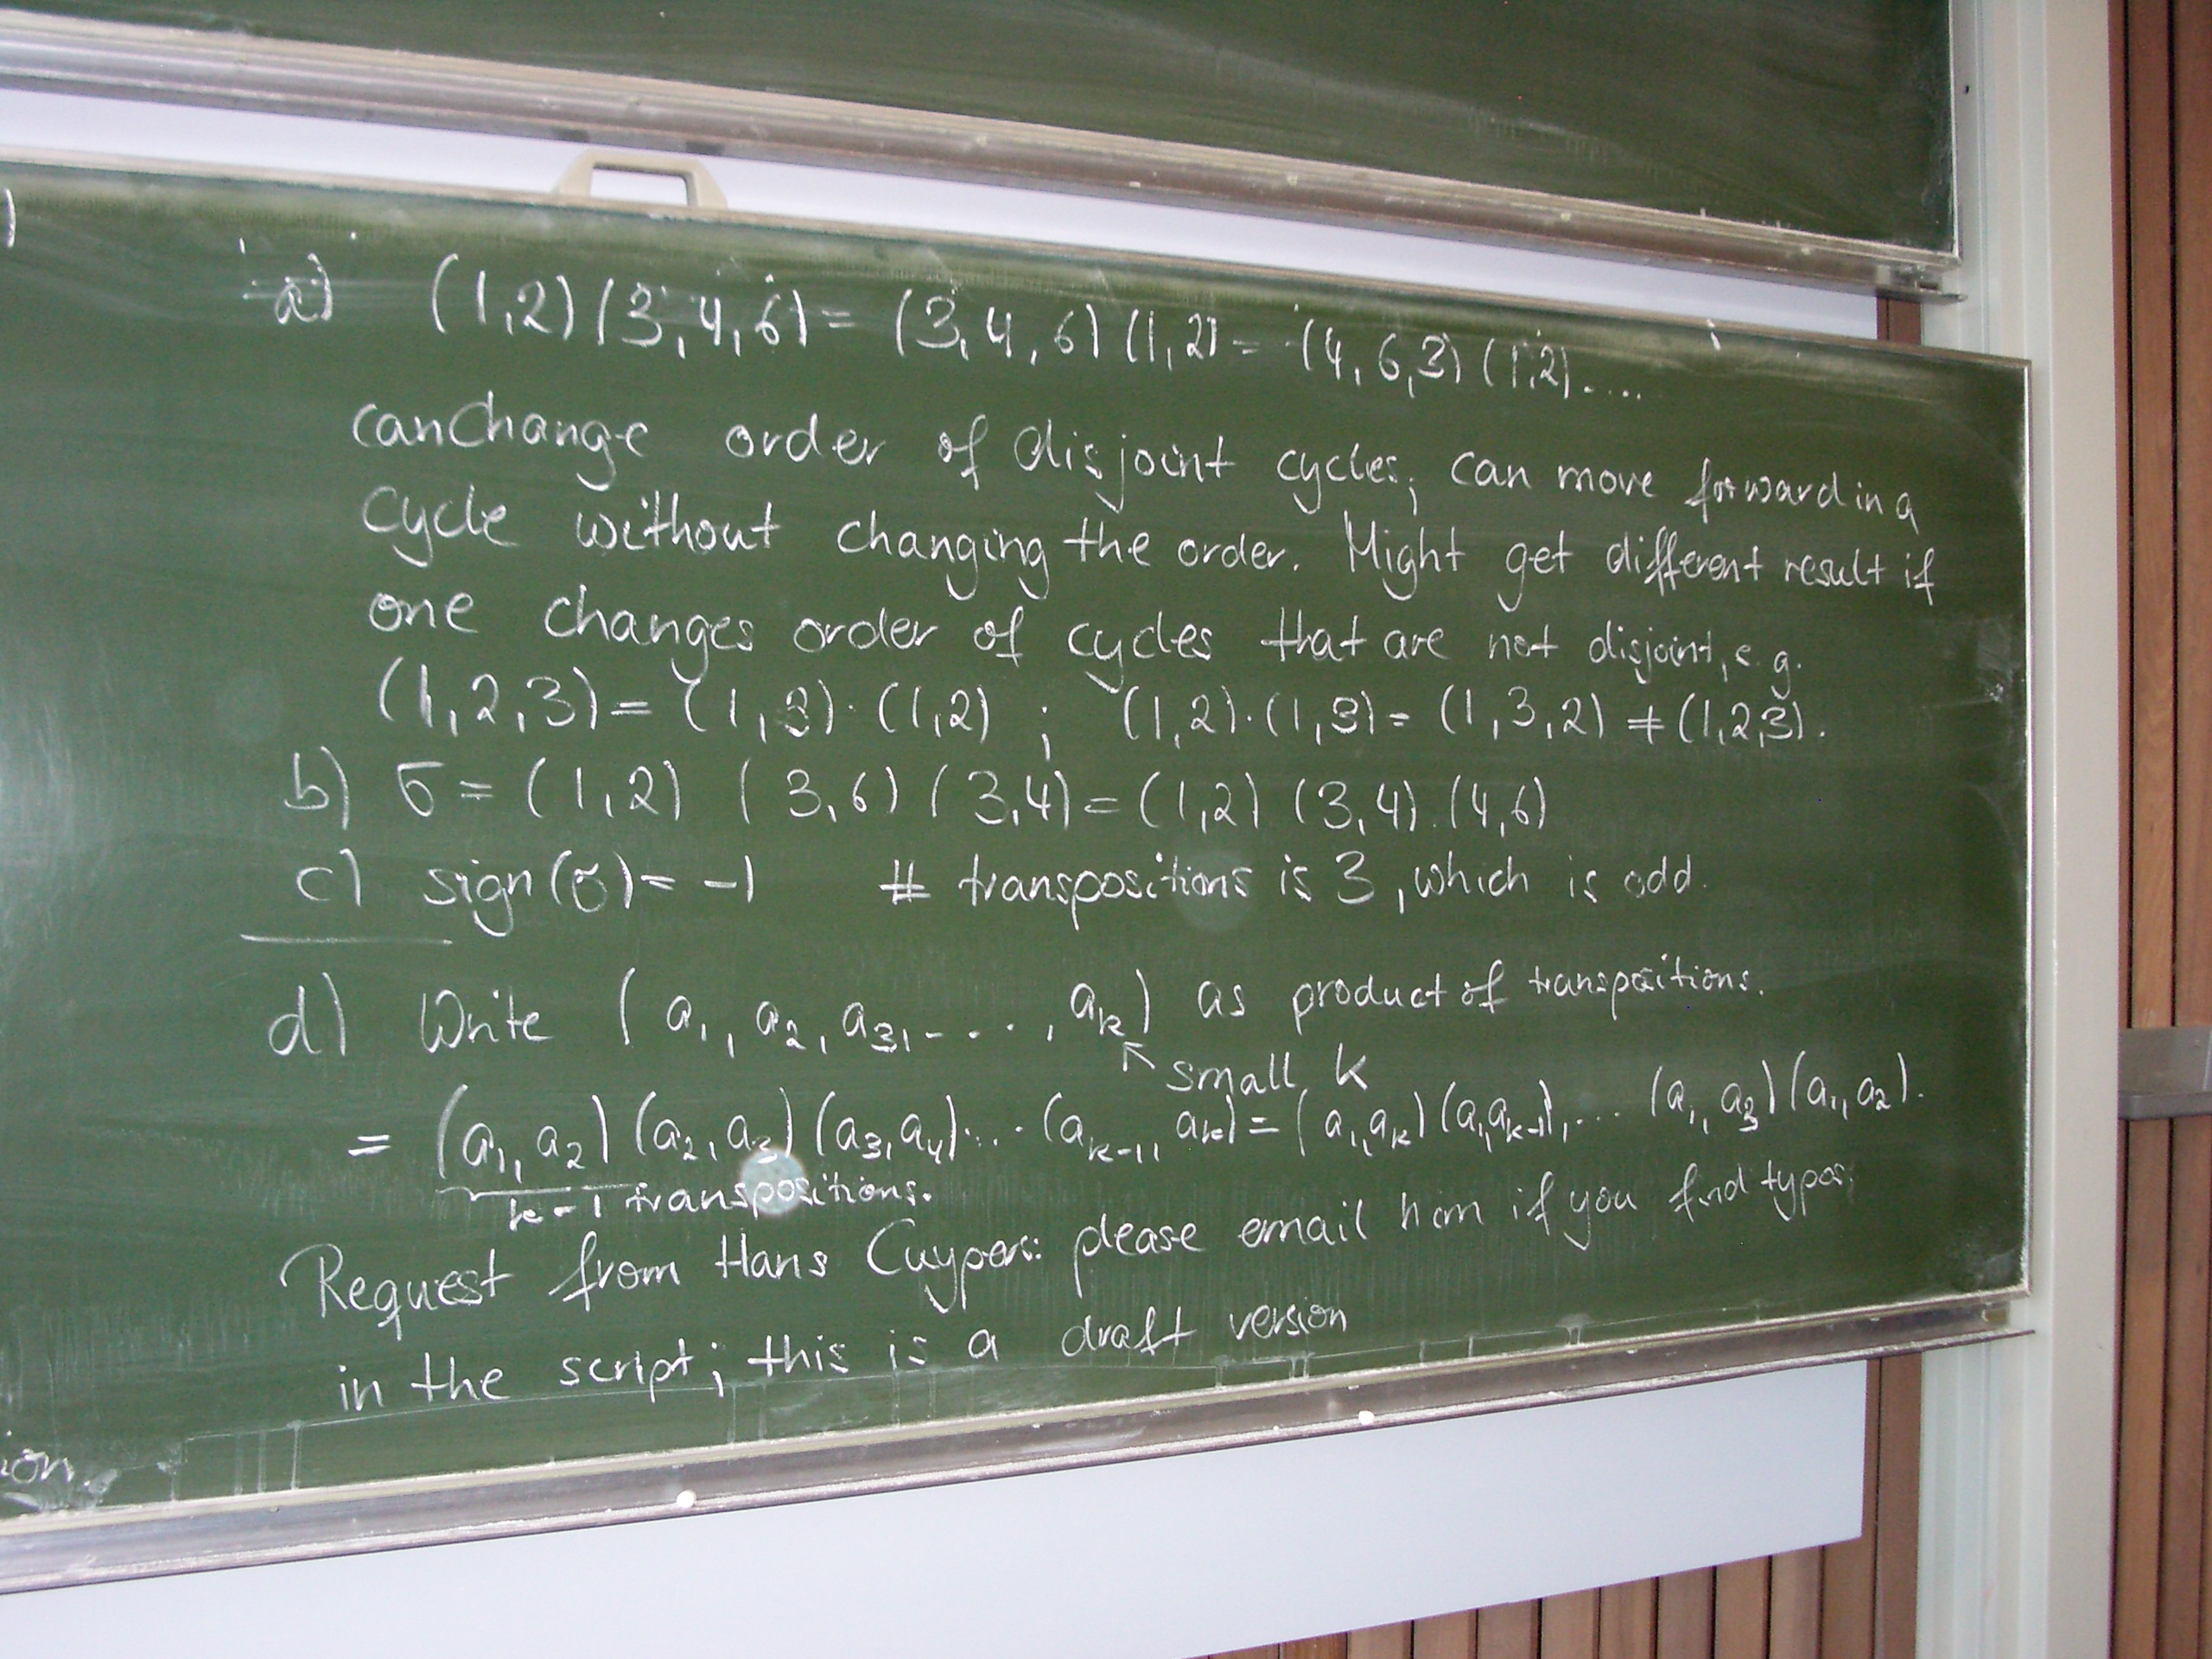 a) (1,2)(3,4,6) = (3,4,6)(1,2) = (4,6,3)(1,2)....
can change order of disjoint cycles; can move forward in a
cycle without changing the order. Might get different result if
one changes order of cycles that are not disjoint, e.g.
(1,2,3) = (1,3)·(1,2) ; (1,2)·(1,3) = (1,3,2) ≠ (1,2,3).
b) σ = (1,2) (3,6)(3,4) = (1,2) (3,4).(4,6)
c) sign(σ) = -1 # transpositions is 3, which is odd.
d) Write (a₁, a₂, a₃, - ..., aₖ) as product of transpositions.
↖ small k
= (a₁, a₂)(a₂, a₃)(a₃, a₄)... (aₖ₋₁, aₖ) = (a₁, aₖ)(a₁, aₖ₋₁), ... (a₁, a₃)(a₁, a₂).
k-1 transpositions.
Request from Hans Cuypers: please email him if you find typos
in the script; this is a draft version
ion.